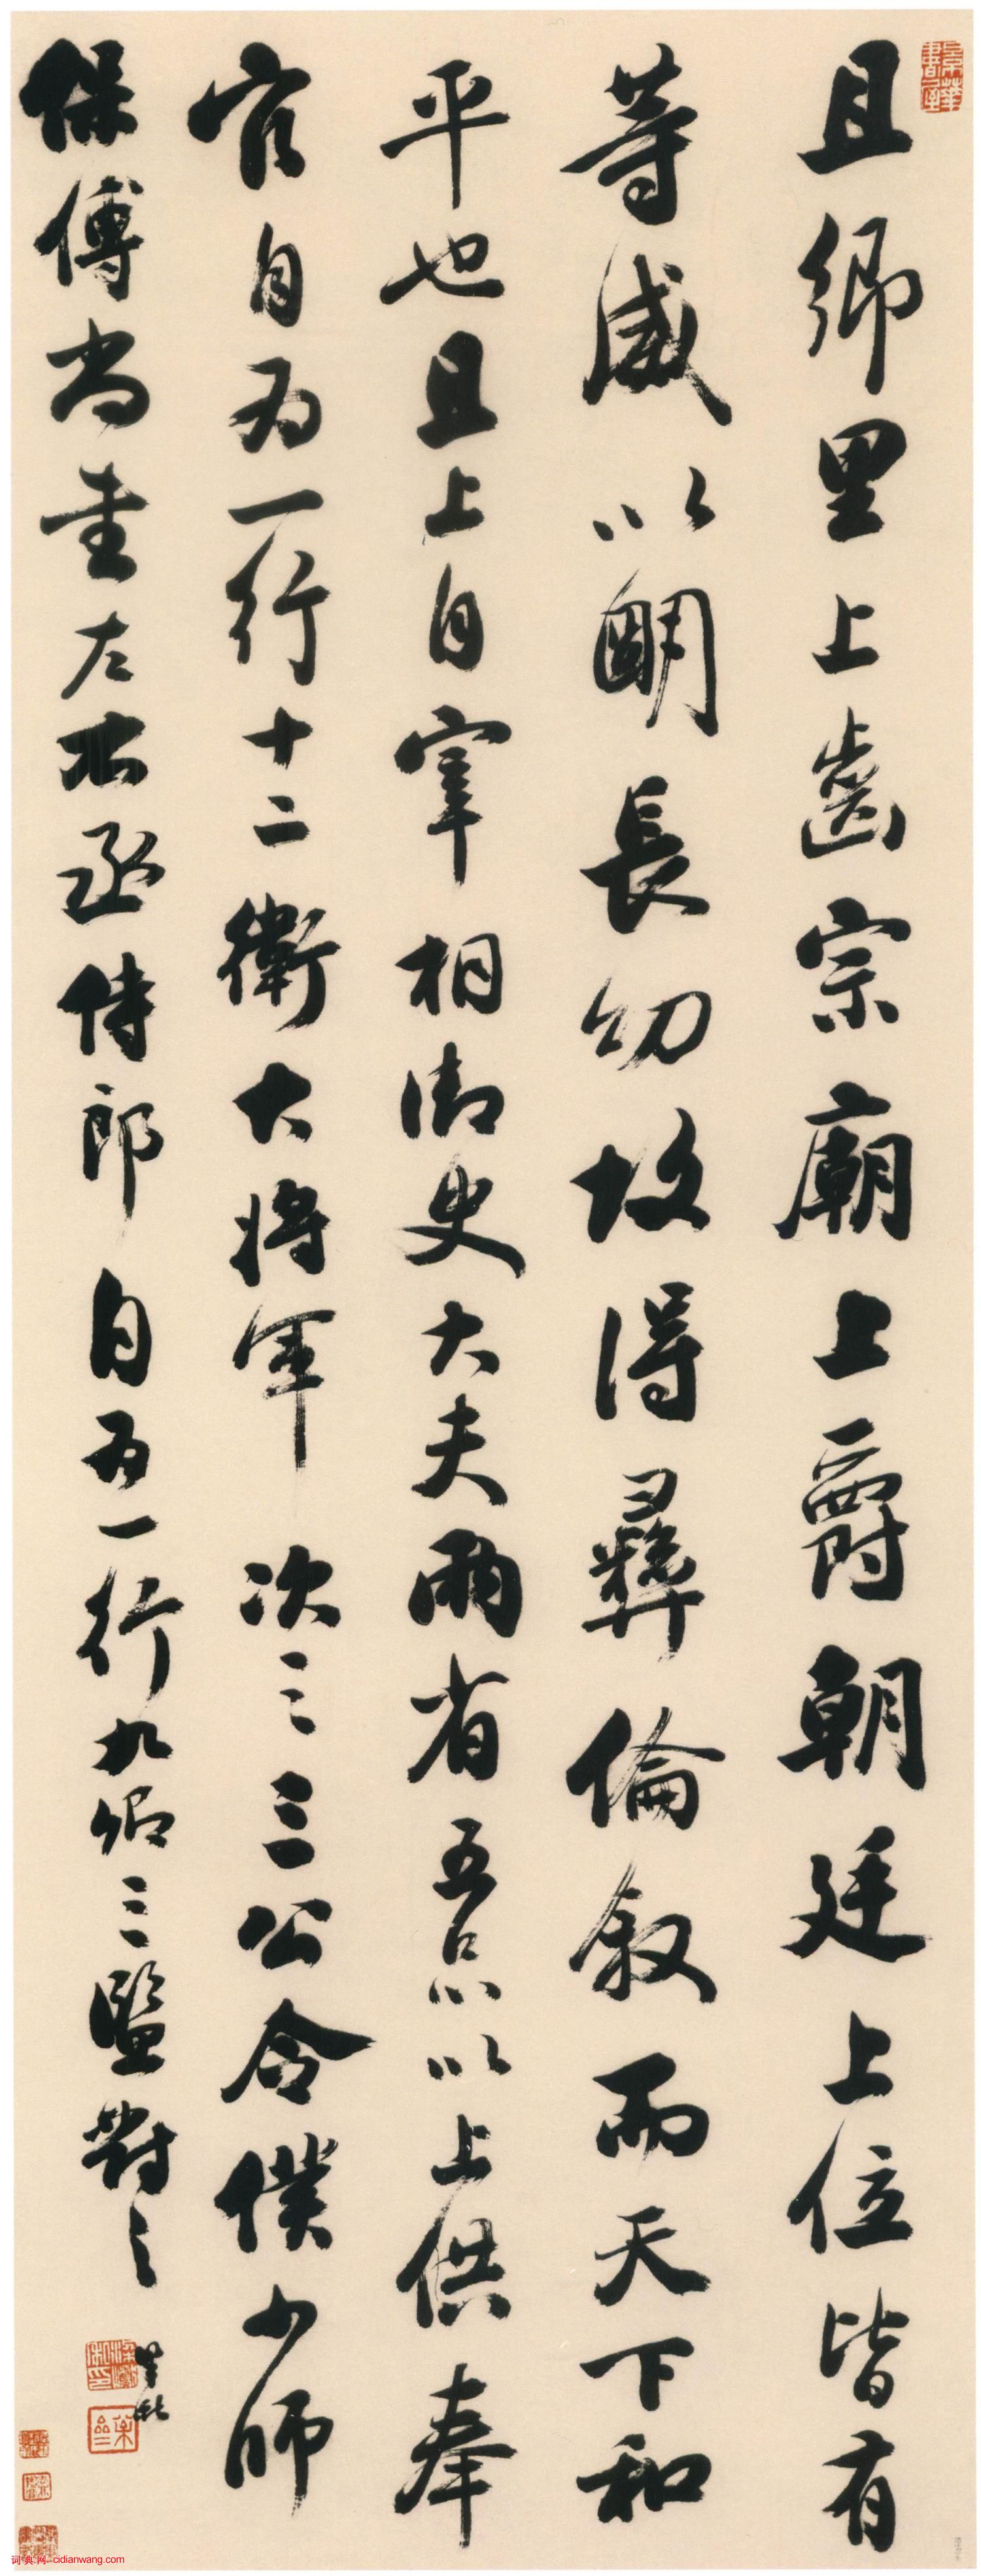 且鄉里上齒宗廟上爵朝廷上位皆有
等威以朙長幼故得彝倫叙而天下和
平也且上自宰相御史大夫兩省五品以上供奉
官自為一行十二衛大將軍次之三公令僕少師
保傅尚書左右丞侍郎自為一行九卿三監對之
词典网-cidianwang.com